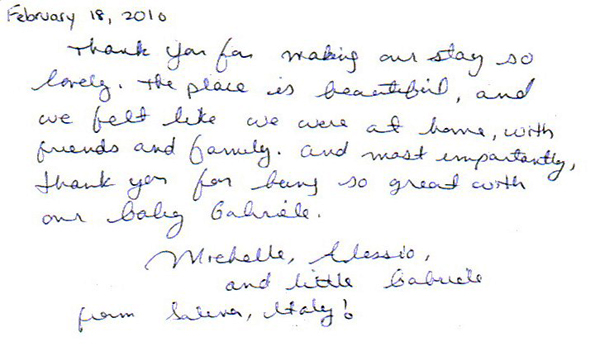 February 18, 2010
Thank you for making our stay so
lovely. The place is beautiful, and
we felt like we were at home, with
friends and family. And most importantly,
thank you for being so great with
our baby Gabriele.
Michelle, Alessio,
and little Gabriele
from , Italy!